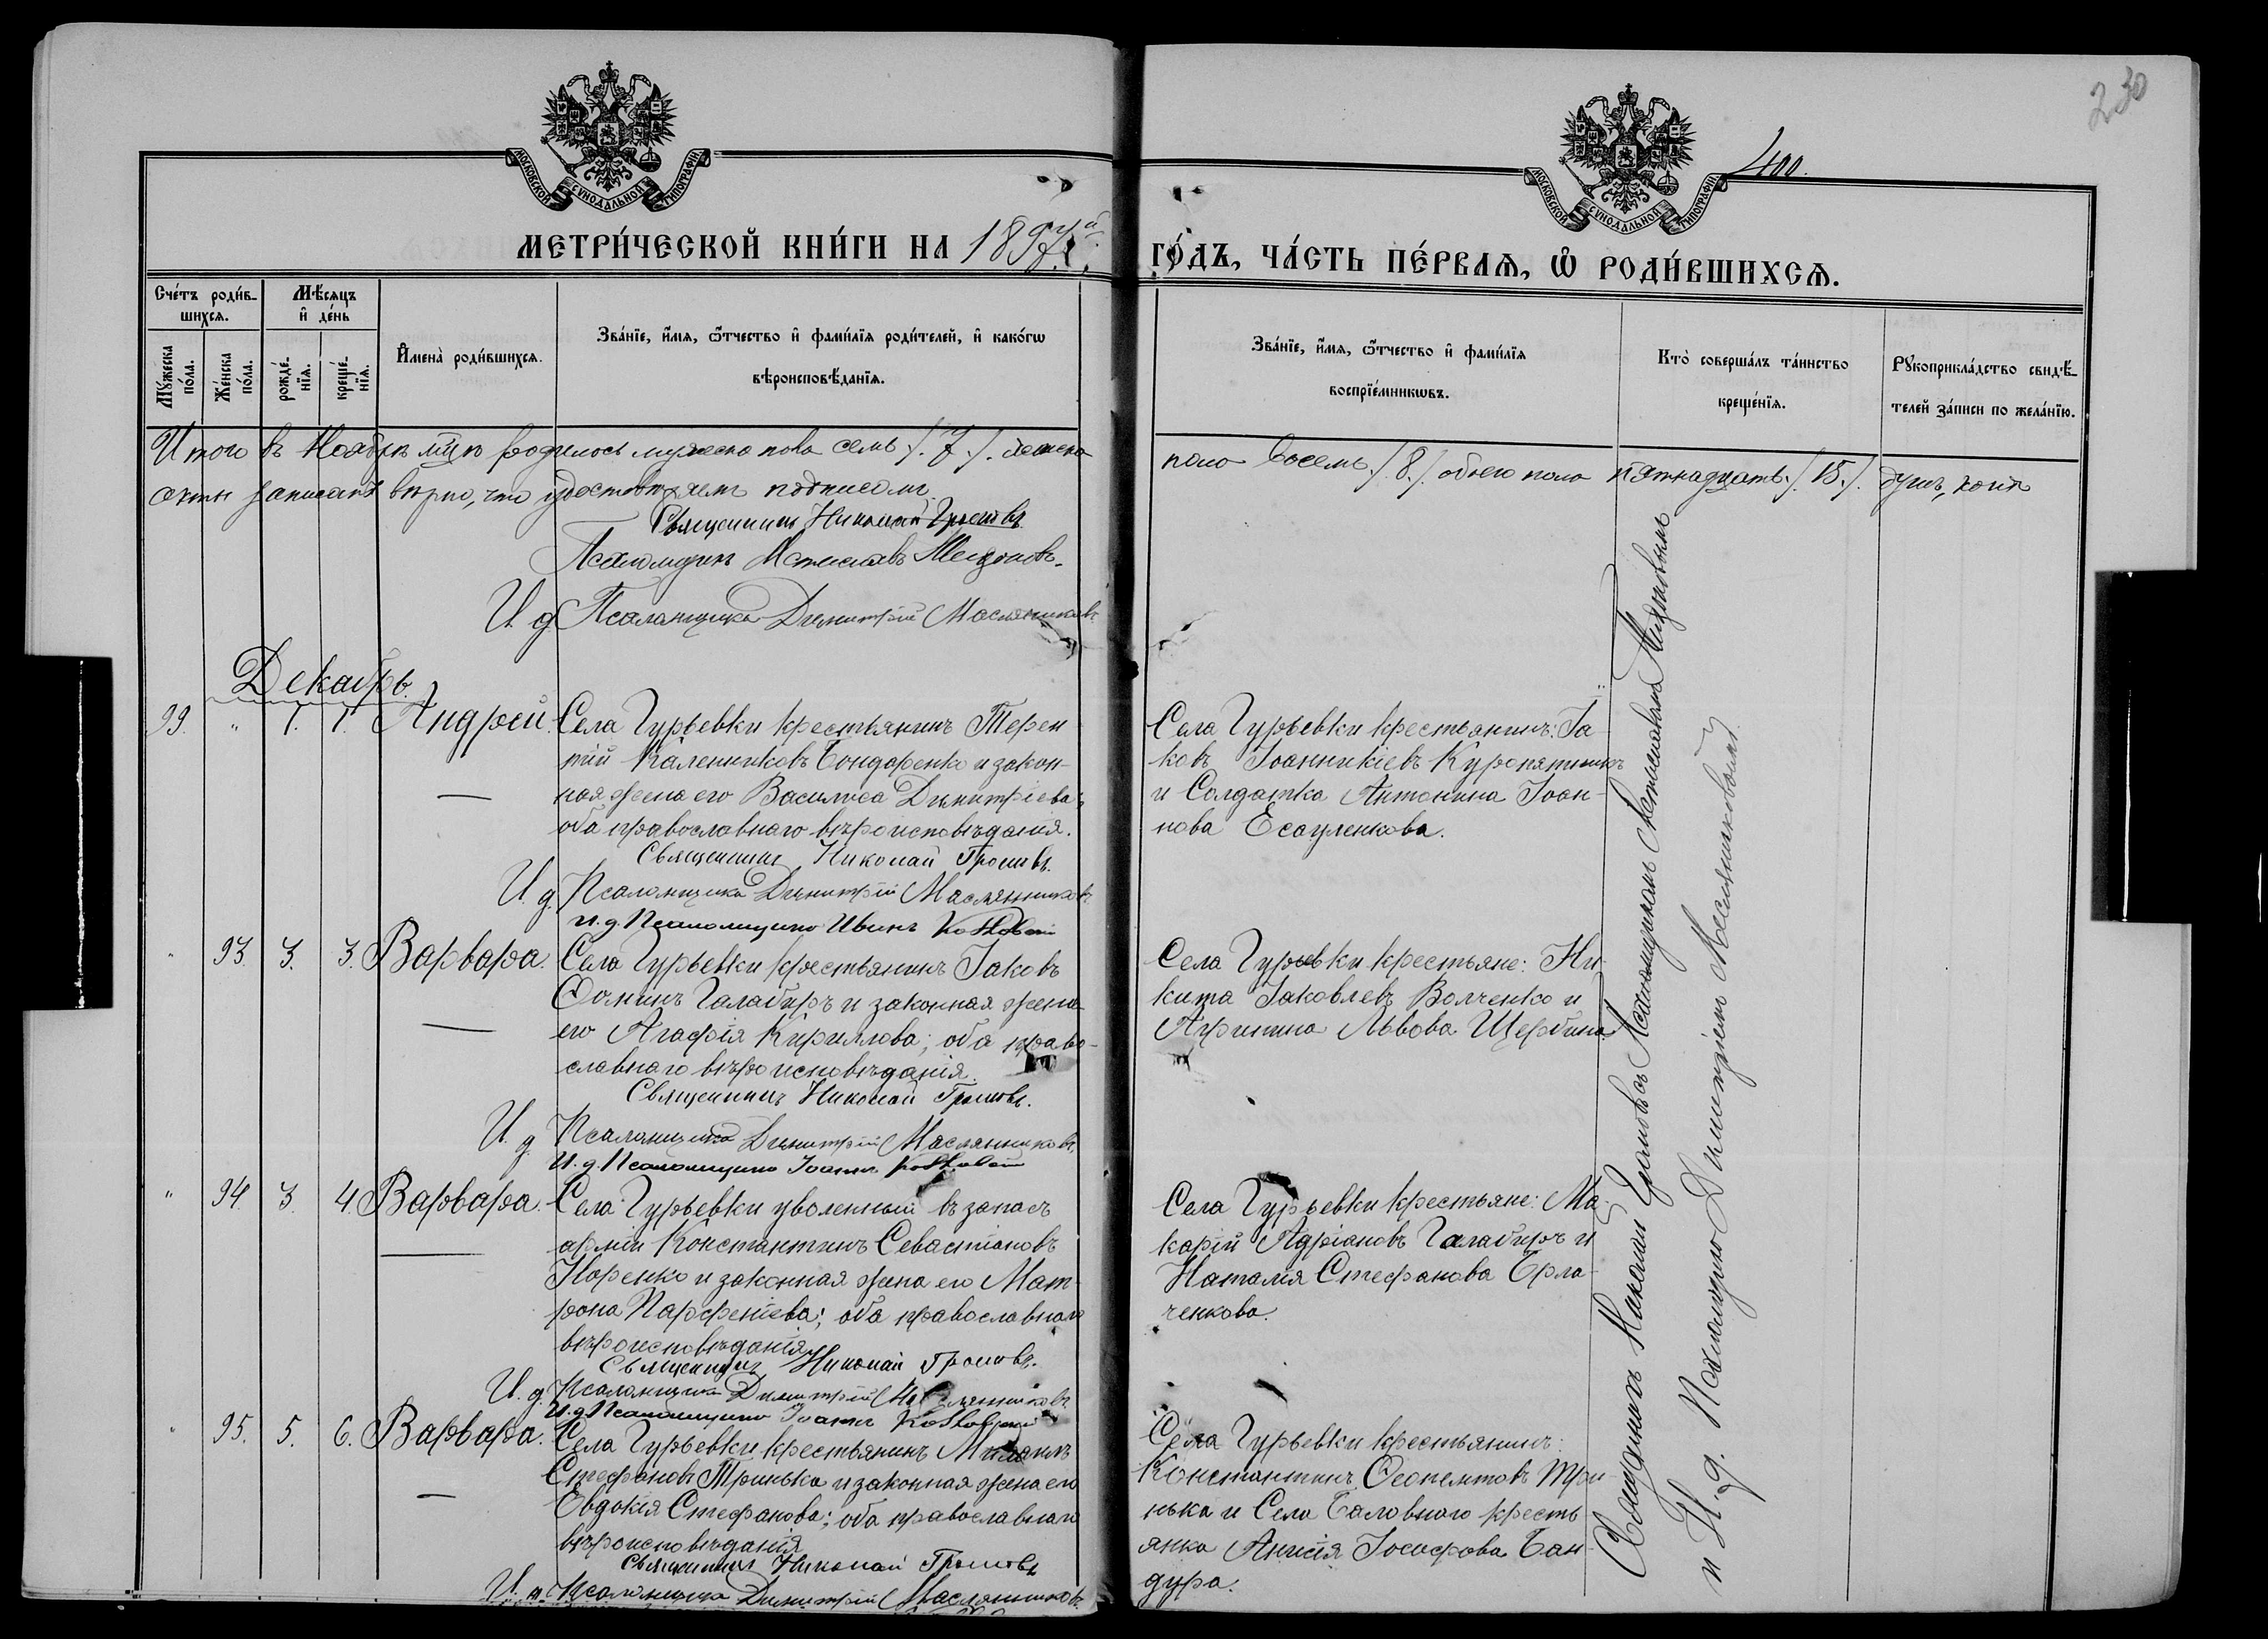 230
400.
МОСКОВСКОЙ СУНОДАЛЬНОЙ ТИПОГРАФІИ
МОСКОВСКОЙ СУНОДАЛЬНОЙ ТИПОГРАФІИ
МЕТРИ́ЧЕСКОЙ КНИ́ГИ НА 1897й.
ГО́ДЪ, ЧА́СТЬ ПЕ́РВАѦ, Ѡ РОДИ́ВШИХСѦ.
Сче́тъ роди́в-
шихсѧ.
Мꙋ́жеска по́ла.
Же́нска по́ла.
Мѣ́сѧцъ
и҆ де́нь
рожде́-
нїѧ.
креще́-
нїѧ.
И҆мена̀ роди́вшихсѧ.
Зва́нїе, и҆́мѧ, ѻ҆́тчество и҆ фами́лїѧ роди́телей, и҆ како́гѡ
вѣроисповѣ́данїѧ.
Зва́нїе, и҆́мѧ, ѻ҆́тчество и҆ фами́лїѧ
воспрїе́мникѡвъ.
Кто̀ соверша́лъ та́инство
креще́нїѧ.
Рꙋкоприкла́дство свидѣ́-
телей за́писи по жела́нїю.
Итого въ Ноябрѣ м-цѣ родилось мужеска пола семь /.7./. женска
пола восемь /.8./. обоего пола пятнадцать /.15./. душъ, коихъ
акты записаны вѣрно, что удостовѣряемъ подписомъ.
Священникъ Николай Громовъ
Псаломщикъ Мстиславъ
И. д. Псаломщика Димитрій Маслянниковъ
Декабрь.
99. " 1. 1. Андрей.
Села Гурьевки крестьянинъ Терен
тій Каленниковъ Бондаренко и закон-
ная жена его Василиса Димитріева;
оба православнаго вѣроисповѣданія.
Священникъ Николай Громовъ.
И. д. Псаломщика Димитрій Маслянниковъ
и. д. Псаломщика Иванъ
Села Гурьевки крестьянинъ: Іа-
ковъ Іоанникіевъ Куропятникъ
и Солдатка Антонина Іоан-
нова Есауленкова.
" 93. 3. 3. Варвара.
Села Гурьевки крестьянинъ Іаковъ
Ѳоминъ Галабиръ и законная жена
его Агафія Кириллова; оба право-
славнаго вѣроисповѣданія.
Священникъ Николай Громовъ.
И. д. Псаломщика Димитрій Маслянниковъ.
И. д. Псаломщика Іоаннъ
Села Гурьевки крестьяне: Ни-
кита Іаковлевъ Волченко и
Львова Щербина.
" 94. 3. 4. Варвара.
Села Гурьевки уволенный въ запасъ
арміи Константинъ Севастіановъ
Норенко и законная жена его Мат-
рона Парфеніева; оба православнаго
вѣроисповѣданія.
Священникъ Николай Громовъ.
И. д. Псаломщика Димитрій Маслянниковъ.
И. д. Псаломщика Іоаннъ
Села Гурьевки крестьяне: Ма-
карій Адріановъ Галабиръ и
Наталія Стефанова Ерла-
ченкова.
" 95. 5. 6. Варвара.
Села Гурьевки крестьянинъ Михаилъ
Стефановъ Тринька и законная жена его
Евдокія Стефанова; оба православнаго
вѣроисповѣданія
Священникъ Николай Громовъ
И. д. Псаломщика Димитрій Маслянниковъ.
Села Гурьевки крестьянинъ:
Константинъ Ѳеопемтовъ Три-
нька и Села Баловнаго кресть
янка Анисія Іосифова Бан-
дура.
Священникъ Николай Громовъ съ Псаломщикомъ Мстиславомъ
и И. д. Псаломщика Димитріемъ Маслянниковымъ.